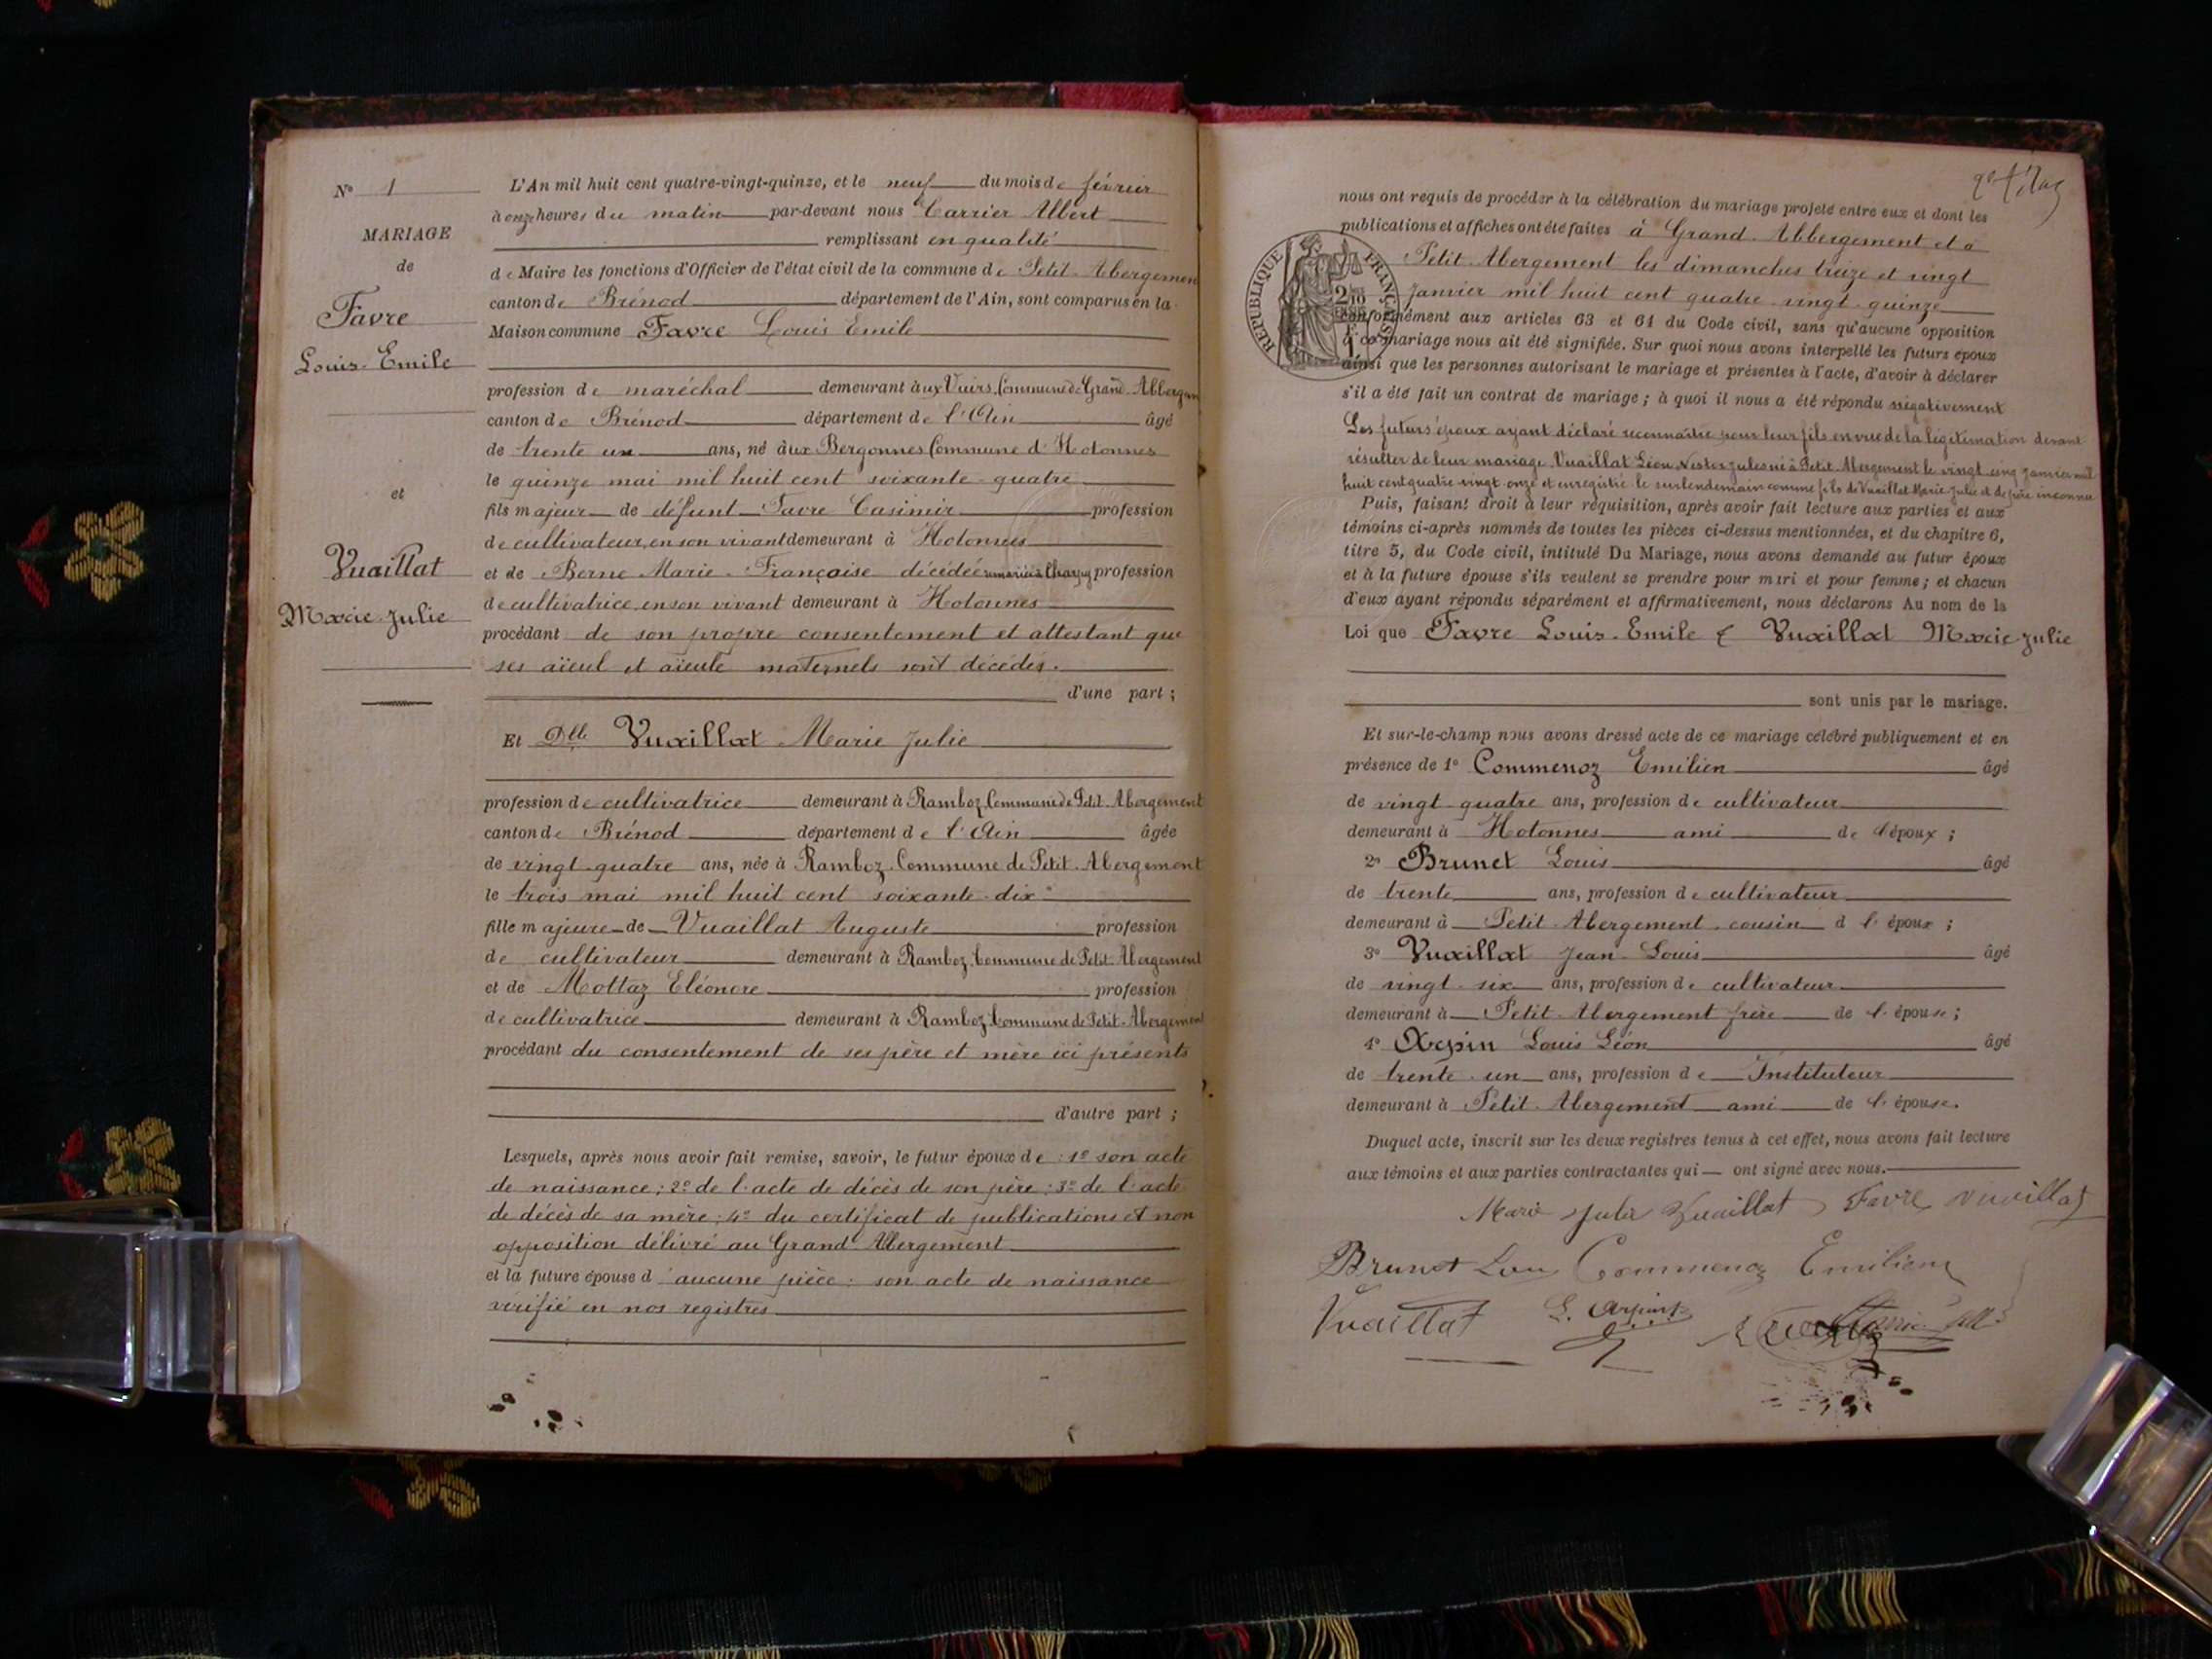 N° 1
MARIAGE
de
Favre
Louis-Emile
et
Vuaillat
Marie-Julie
L'An mil huit cent quatre-vingt-quinze, et le neuf du mois de février
à onze heures du matin par-devant nous Carrier Albert
remplissant en qualité
de Maire les fonctions d'Officier de l'état civil de la commune de Petit-Abergement
canton de Brénod département de l'Ain, sont comparus en la
Maison commune Favre Louis Emile
profession de maréchal demeurant aux Vuirs, Commune de Grand-Abbergem
canton de Brénod département de l'Ain âgé
de trente un ans, né aux Bergonnes, Commune d'Hotonnes
le quinze mai mil huit cent soixante-quatre
fils majeur de défunt Favre Casimir profession
de cultivateur, en son vivant demeurant à Hotonnes
et de Berne Marie-Françoise décédée profession
de cultivatrice, en son vivant demeurant à Hotonnes
procédant de son propre consentement et attestant que
ses aïeul et aïeule maternels sont décédés.
d'une part ;
Et Dlle Vuaillat Marie Julie
profession de cultivatrice demeurant à Ramboz, Commune de Petit-Abergement
canton de Brénod département de l'Ain âgée
de vingt-quatre ans, née à Ramboz, Commune de Petit-Abergement
le trois mai mil huit cent soixante-dix
fille majeure de Vuaillat Auguste profession
de cultivateur demeurant à Ramboz, Commune de Petit-Abergement
et de Mottaz Eléonore profession
de cultivatrice demeurant à Ramboz, Commune de Petit-Abergement
procédant du consentement de ses père et mère ici présents
d'autre part ;
Lesquels, après nous avoir fait remise, savoir, le futur époux de : 1° son acte
de naissance ; 2° de l'acte de décès de son père ; 3° de l'acte
de décès de sa mère ; 4° du certificat de publications et non
opposition délivré au Grand Abergement
et la future épouse d'aucune pièce : son acte de naissance
vérifié en nos registres
nous ont requis de procéder à la célébration du mariage projeté entre eux et dont les
publications et affiches ont été faites à Grand-Abbergement et à
Petit-Abergement les dimanches treize et vingt
janvier mil huit cent quatre-vingt-quinze
conformément aux articles 63 et 64 du Code civil, sans qu'aucune opposition
à ce mariage nous ait été signifiée. Sur quoi nous avons interpellé les futurs époux
ainsi que les personnes autorisant le mariage et présentes à l'acte, d'avoir à déclarer
s'il a été fait un contrat de mariage ; à quoi il nous a été répondu négativement
REPUBLIQUE FRANÇAISE
Les futurs époux ayant déclaré reconnaître pour leur fils en vue de la légitimation devant
résulter de leur mariage, Vuaillat Léon Nestor Jules né à Petit-Abergement le vingt cinq janvier mil
huit cent quatre-vingt-onze et enregistré le surlendemain comme fils de Vuaillat Marie-Julie et de père inconnu
Puis, faisant droit à leur réquisition, après avoir fait lecture aux parties et aux
témoins ci-après nommés de toutes les pièces ci-dessus mentionnées, et du chapitre 6,
titre 5, du Code civil, intitulé Du Mariage, nous avons demandé au futur époux
et à la future épouse s'ils veulent se prendre pour mari et pour femme ; et chacun
d'eux ayant répondu séparément et affirmativement, nous déclarons Au nom de la
Loi que Favre Louis-Emile & Vuaillat Marie-Julie
sont unis par le mariage.
Et sur-le-champ nous avons dressé acte de ce mariage célébré publiquement et en
présence de 1° Commenoz Emilien âgé
de vingt-quatre ans, profession de cultivateur
demeurant à Hotonnes ami de l'époux ;
2° Brunet Louis âgé
de trente ans, profession de cultivateur
demeurant à Petit-Abergement, cousin d l'époux ;
3° Vuaillat Jean-Louis âgé
de vingt-six ans, profession de cultivateur
demeurant à Petit-Abergement frère de l'épouse ;
4° Arpin Louis Léon âgé
de trente-un ans, profession de Instituteur
demeurant à Petit-Abergement ami de l'épouse.
Duquel acte, inscrit sur les deux registres tenus à cet effet, nous avons fait lecture
aux témoins et aux parties contractantes qui ont signé avec nous.
Marie Julie Vuaillat Favre Vuaillat
Brunet Lou Commenoz Emilien
Vuaillat L. Arpin